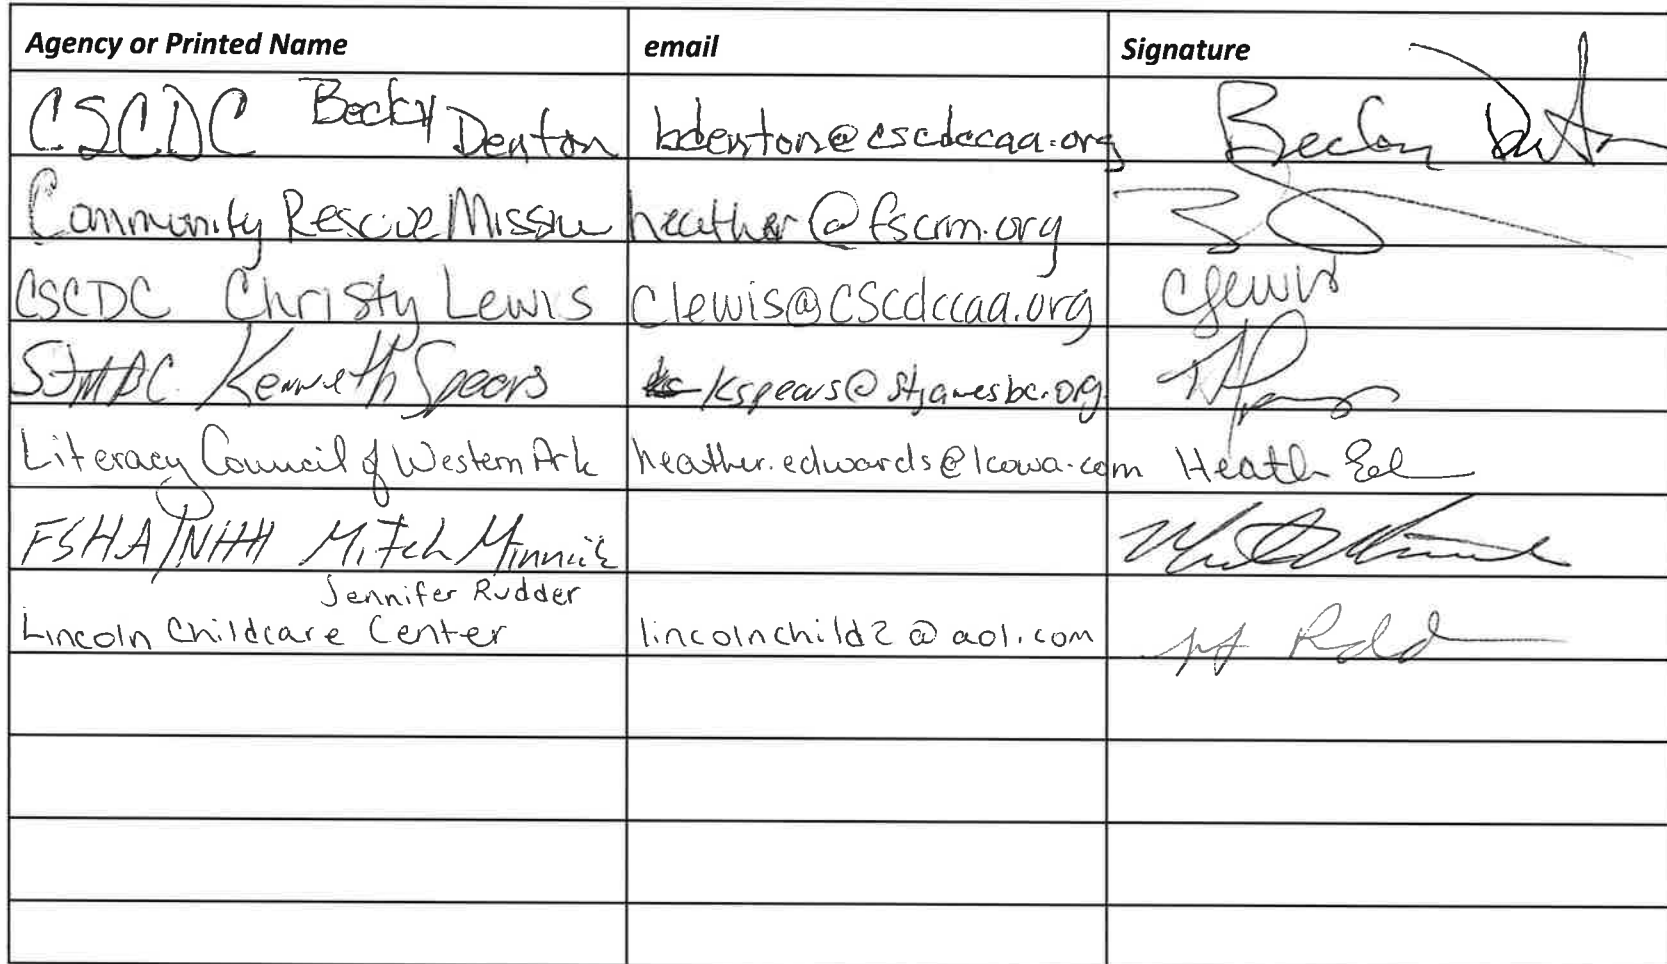 Agency or Printed Name email Signature
CSCDC Becky Denton bdenton@cscdccaa.org Becky
Community Rescue Mission heather@fscrm.org
CSCDC Christy Lewis Clewis@CScdccaa.org CLewis
SJMBC Kenneth Spears kspears@stjamesbc.org
Literacy Council of Western Ark heather.edwards@lcowa.com Heath
FSHA/ Mitch Minnick
Jennifer Rudder
Lincoln Childcare Center lincolnchild2@aol.com